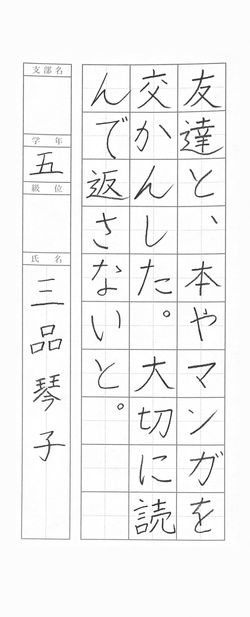 友達と、本やマンガを
交かんした。大切に読
んで返さないと。
支部名
学年
五
級位
氏名
三品琴子